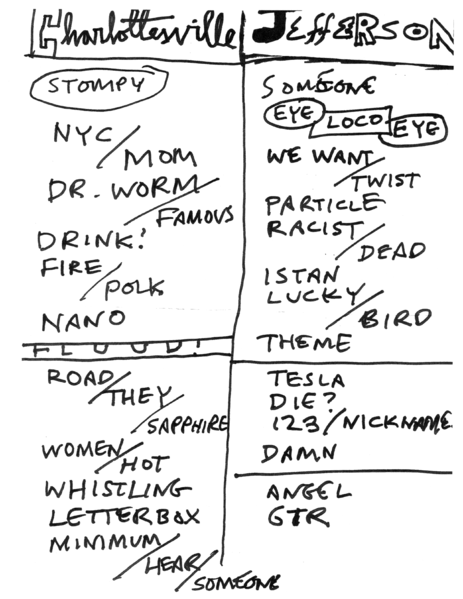 Charlottesville
STOMPY
NYC/
MOM
DR. WORM/
FAMOUS
DRINK!
FIRE/
POLK
NANO
FLOOD!
ROAD/
THEY/
SAPPHIRE
WOMEN/
HOT
WHISTLING
LETTERBOX
MINIMUM/
HEAR/
SOMEONE
JEffERSON
SOMEONE
EYE LOCO EYE
WE WANT/
TWIST
PARTICLE
RACIST/
DEAD
ISTAN
LUCKY/
BIRD
THEME
TESLA
DIE?
123/NICKNAME
DAMN
ANGEL
GTR